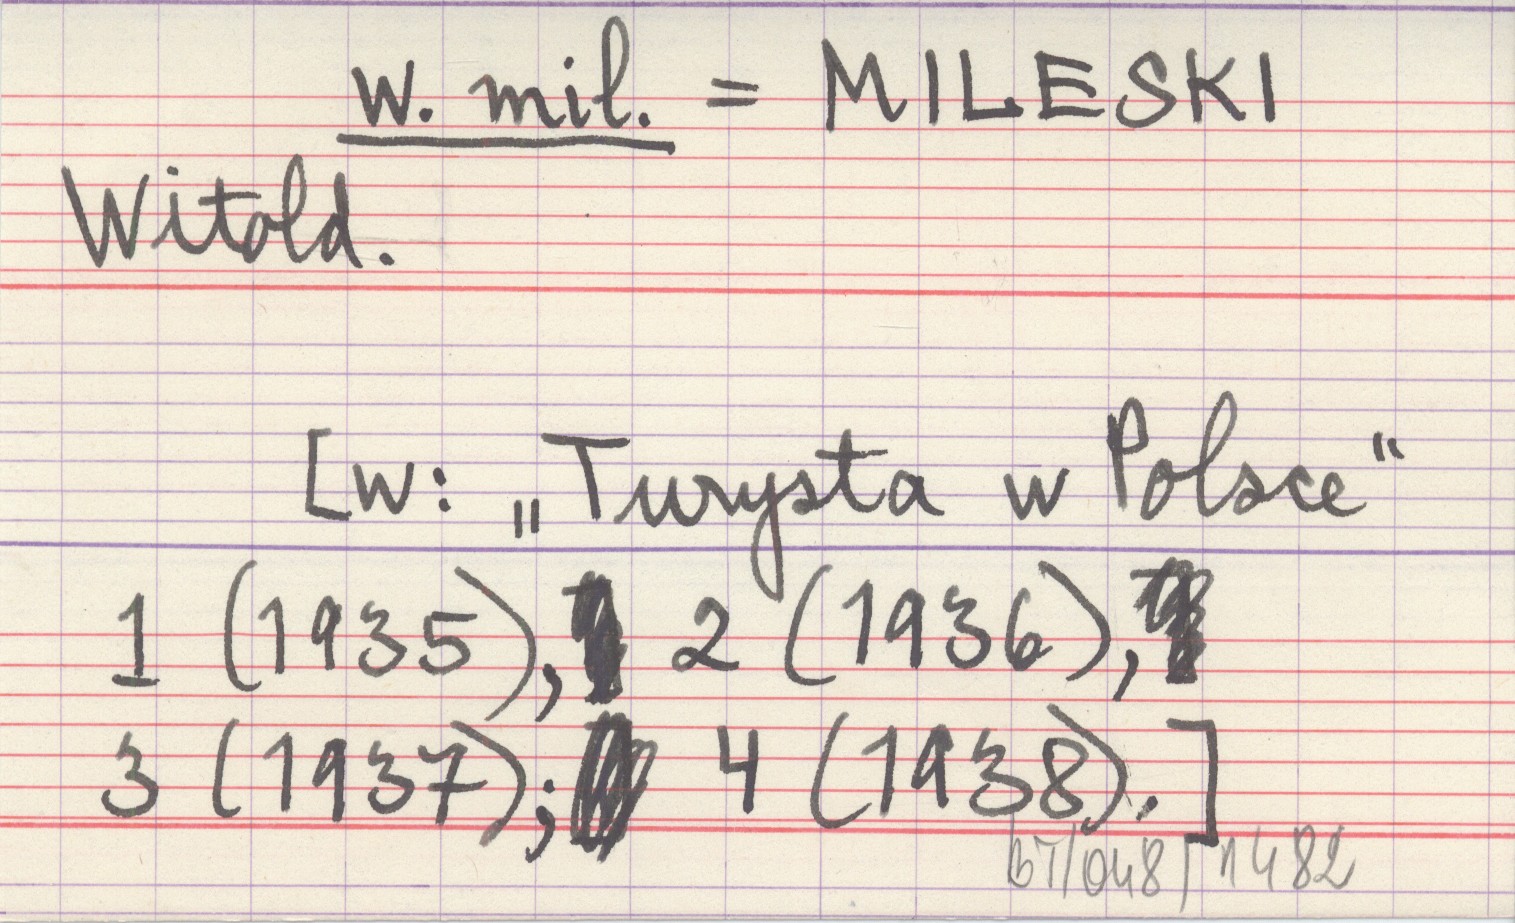 w. mil. = MILESKI
Witold.
[w: „Turysta w Polsce“
1 (1935), 2 (1936),
3 (1937); 4 (1938).]
bT/048/1482